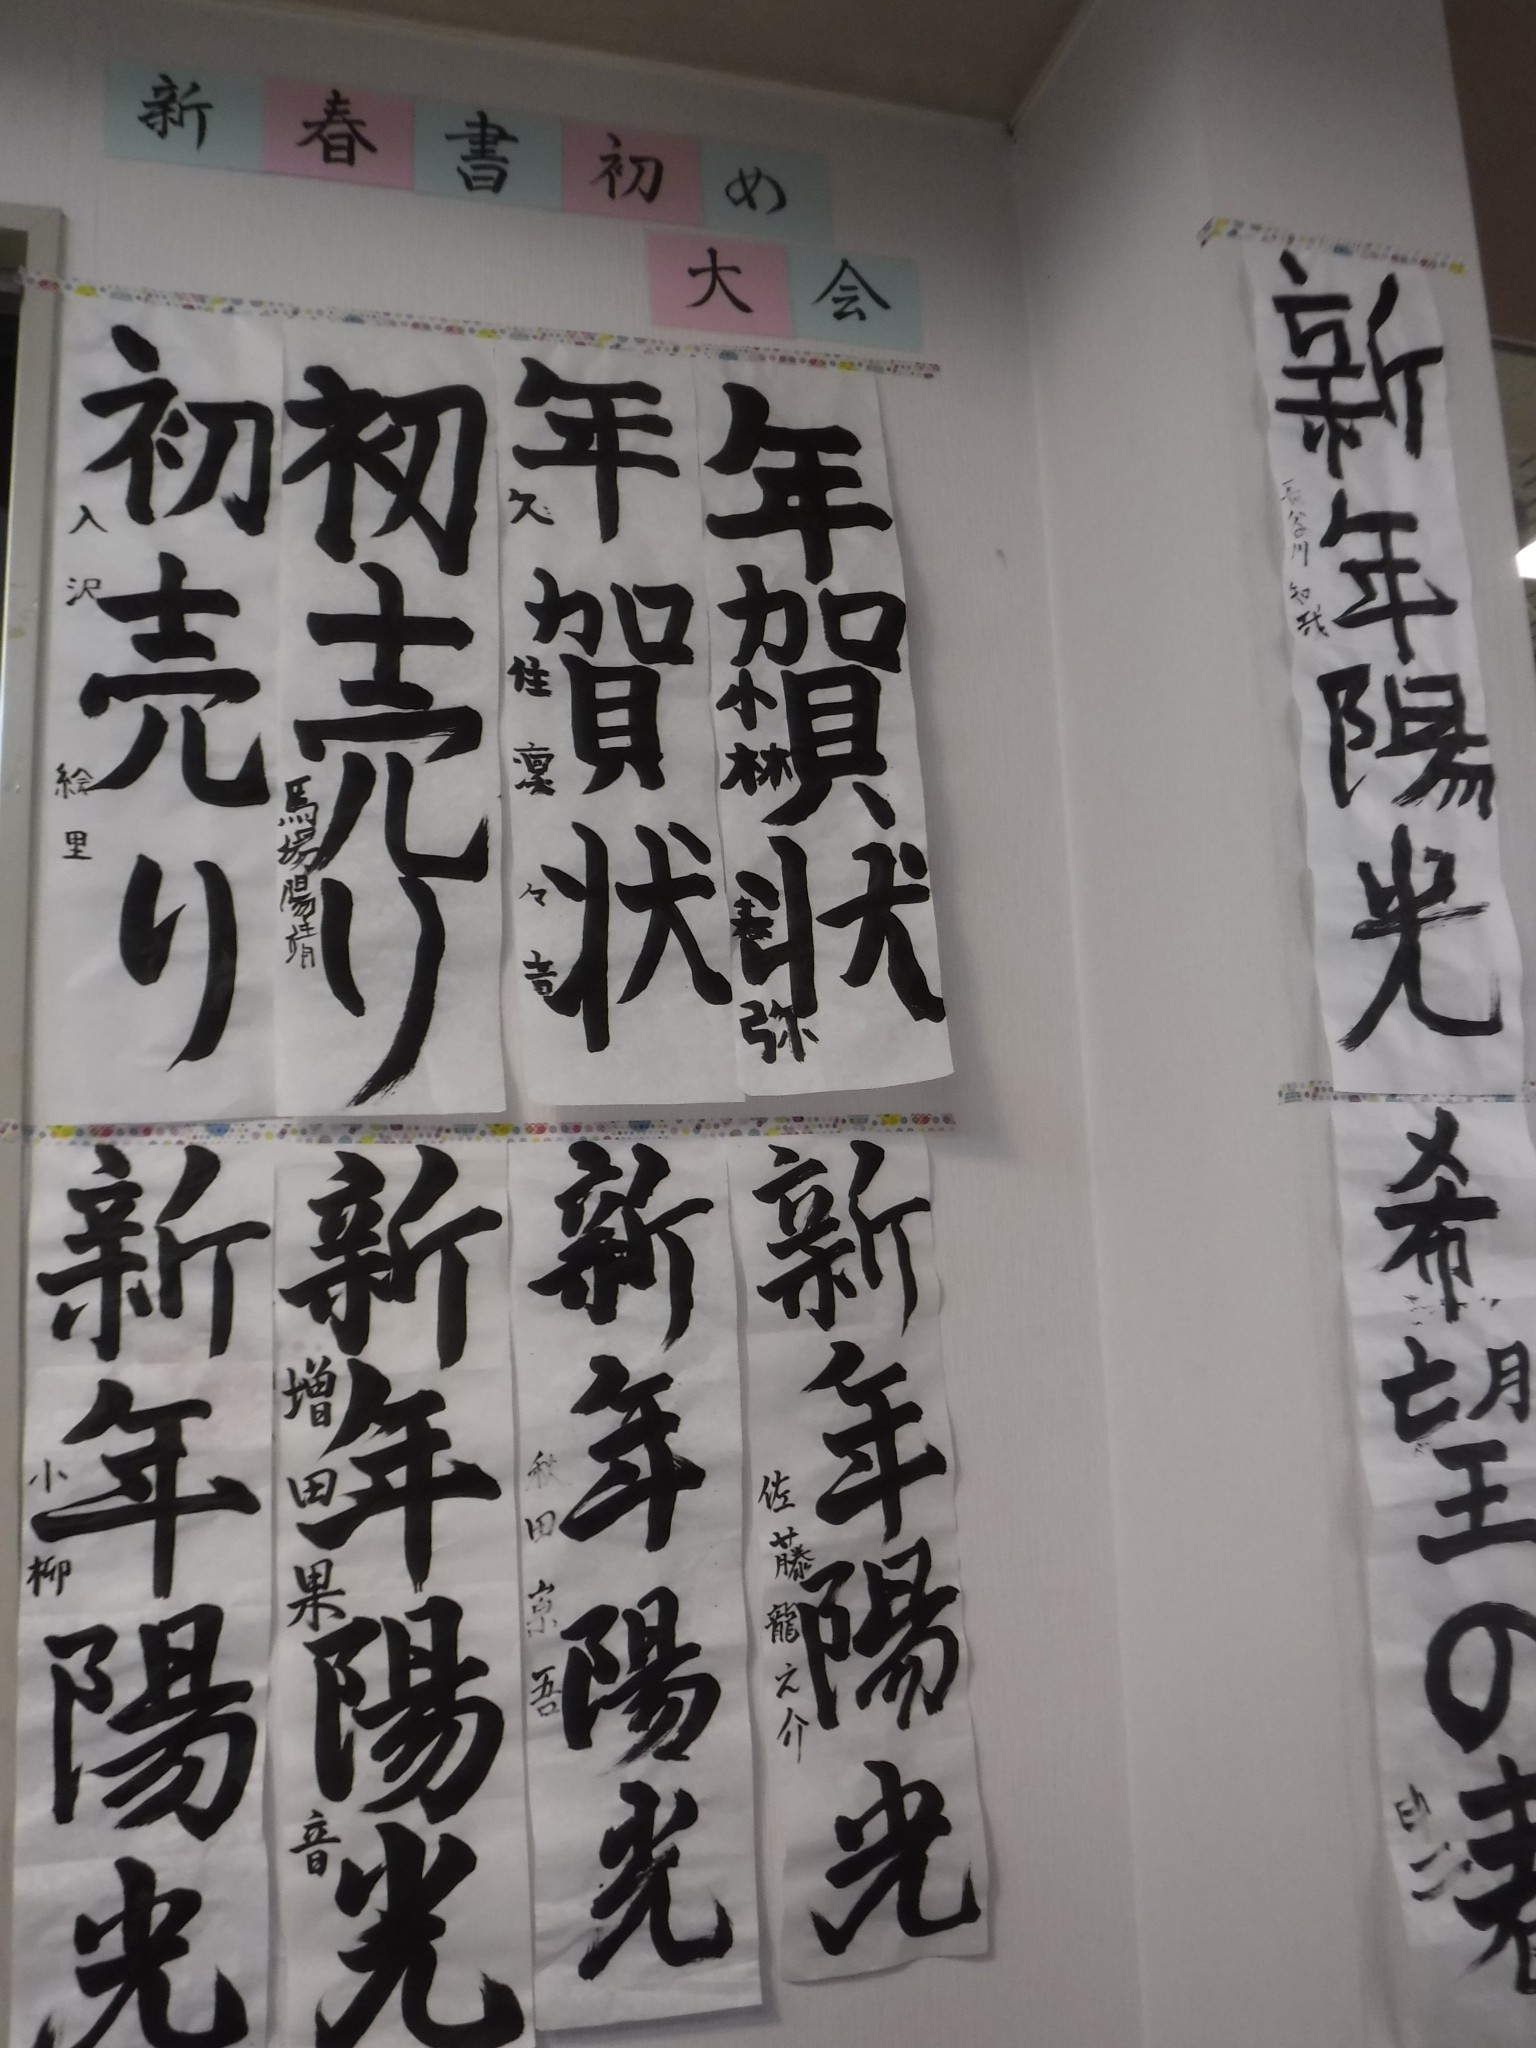 新春書初め
大会
年賀状
小林
弥
年賀状
々音
初売り
馬場陽
初売り
入沢絵里
新年陽光
佐藤龍之介
新年陽光
秋田京吾
新年陽光
増田果音
新年陽光
小柳
新年陽光
長谷川知哉
希望の春